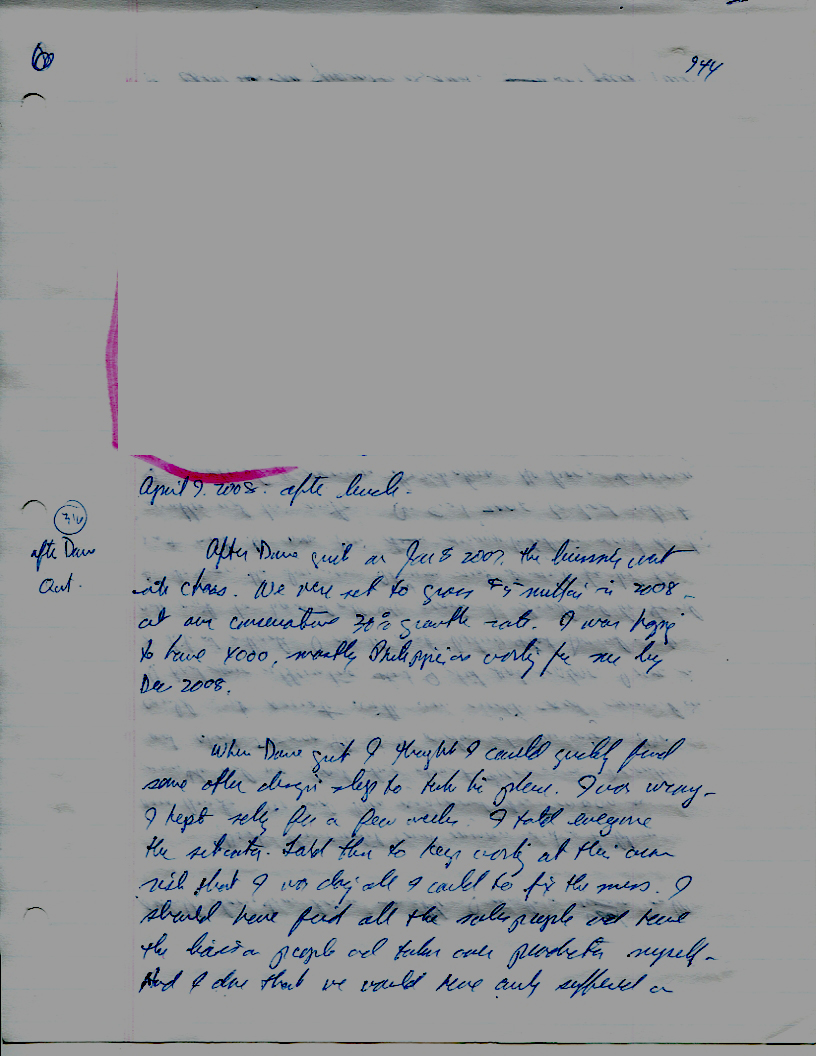 944
April 9. 2008. after lunch.
314
after Dave
Quit.
After Dave quit on Jan 8 2007, the business went
into chaos. We were set to gross $5 million in 2008 -
at our conservative 30% growth rate. I was hoping
to have 4000, mostly Philippinos working for me by
Dec 2008.
When Dave quit I thought I could quickly find
some other design shop to take his place. I was wrong -
I kept selling for a few weeks. I told everyone
the situation. Told them to keep working at their own
risk that I was doing all I could to fix the mess. I
should have fired all the sales people and have
the liaison people and taken over production myself -
Had I done that we would have only suffered a